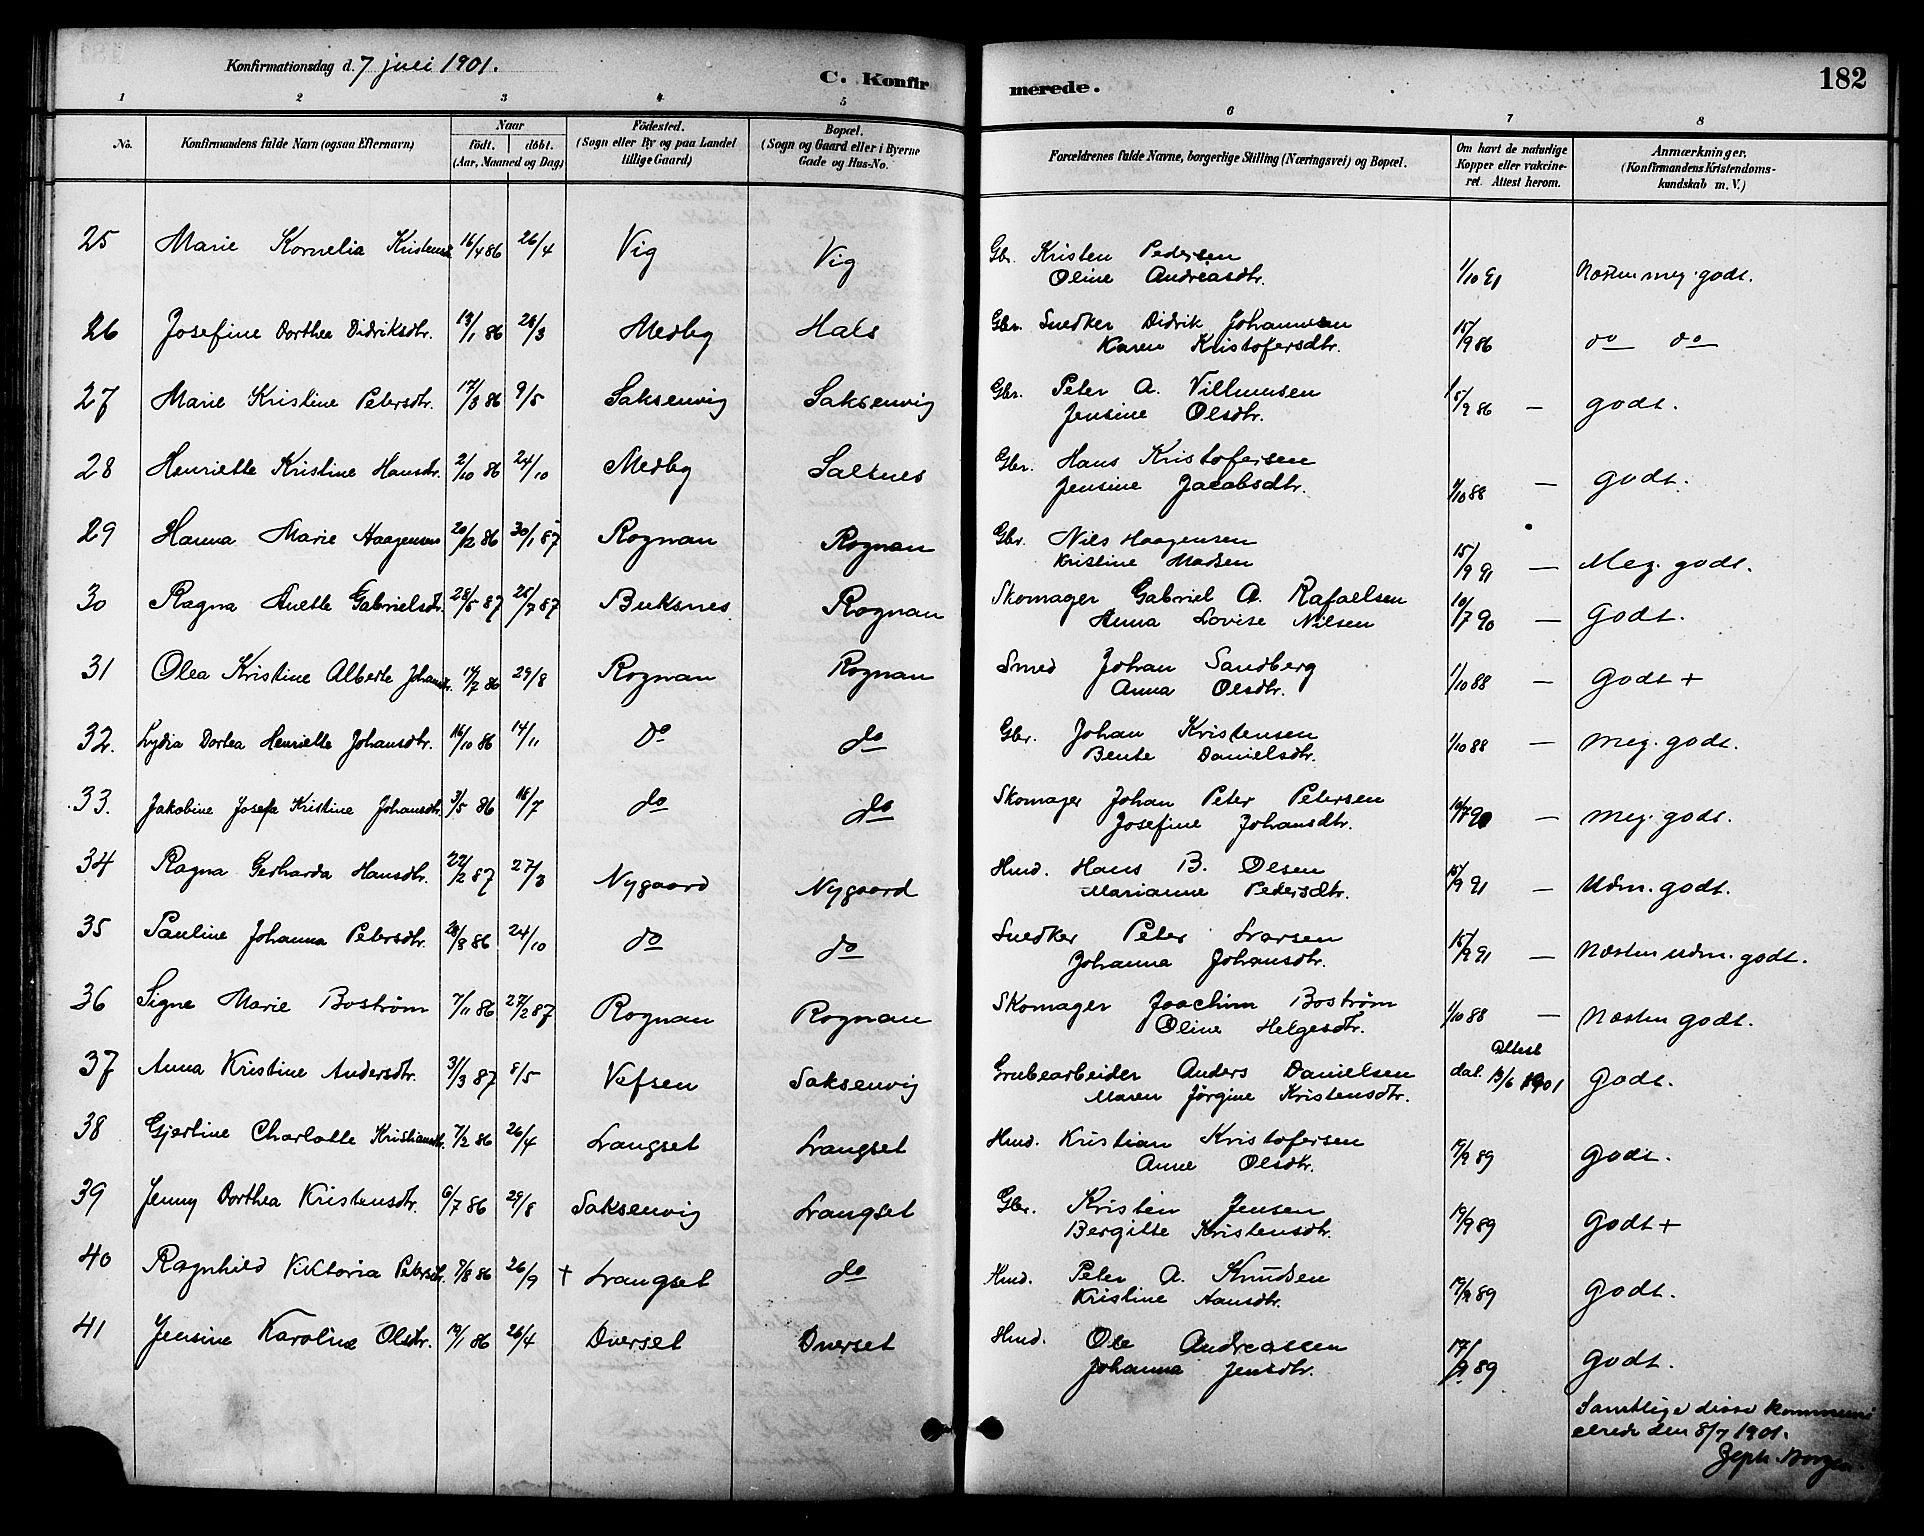 Konfirmationsdag d. 7 juli 1901.
C. Konfir
merede.
182
1 2 3 4 5 6 7 8
No.
Konfirmandens fulde Navn (ogsaa Efternavn)
Naar
født. døbt.
(Aar, Maaned og Dag)
Fødested.
(Sogn eller By og paa Landet
tillige Gaard)
Bopæl.
(Sogn og Gaard eller i Byerne
Gade og Hus-No.
Forældrenes fulde Navne, borgerlige Stilling (Næringsvei) og Bopæl.
Om havt de naturlige
Kopper eller vakcine-
ret. Attest herom.
Anmærkninger.
(Konfirmandens Kristendoms-
kundskab m. V.)
25 Marie Kornelia Kristensd 16/4 86 26/4 Vig Vig Gbr. Kristen Pedersen
Oline Andreasdtr. 1/10 91 Næsten meg. godt.
26 Josefine Dorthea Didriksdtr. 13/1 86 28/3 Medby Hals Gbr. Snedker Didrik Johannesen
Karen Kristofersdtr. 15/9 86 do do
27 Marie Kristine Petersdtr. 17/3 86 9/5 Saksenvig Saksenvig Gbr. Peter A. Villumsen
Jensine Olsdtr. 15/9 86 — godt.
28 Henriette Kristine Hansdtr. 2/10 86 24/10 Medby Saltnes Gbr. Hans Kristofersen
Jensine Jacobsdtr. 1/10 88 — godt.
29 Hanna Marie Haagensen 20/12 86 30/1 87 Rognan Rognan Gbr. Nils Haagensen
Kristine Madsen 15/9 91 — Meg. godt.
30 Ragna Anette Gabrielsdtr. 28/5 87 25/7 87 Buksnes Rognan Skomager Gabriel A. Rafaelsen
Anna Lovise Nilsen 10/7 90 — Godt.
31 Olea Kristine Alberte Johansdtr. 14/7 86 29/8 Rognan Rognan Smed Johan Sandberg
Anna Olsdtr. 1/10 88 — Godt +
32. Lydia Dortea Henriette Johansdtr. 16/10 86 14/11 do do Gbr. Johan Kristensen
Bente Danielsdtr. 1/10 88 — meg. godt.
33. Jakobine Josefa Kristine Johansdtr. 3/5 86 18/7 do do Skomager Johan Peter Petersen
Josefine Johansdtr. 10/7 90 — meg. godt.
34 Ragna Gerharda Hansdtr. 22/2 87 27/3 Nygaard Nygaard Hmd. Hans B. Olsen
Marianne Pedersdtr. 15/9 91 — Udm. godt.
35 Pauline Johanna Petersdtr. 24/10 do do Snedker Peter Larsen
Johanna Johansdtr. 15/9 91 — Næsten udm. godt.
36 Signe Marie Boström 7/11 86 27/2 87 Rognan Rognan Skomager Joachim Boström
Oline Helgesdtr. 1/10 88 — Næsten godt.
37 Anna Kristine Andersdtr. 31/3 87 8/5 Vefsen Saksenvig Grubearbeider Anders Danielsen
Maren Jørgine Kristensdtr. Attest
dat. 13/6 1901 Godt.
38 Gjertine Charlotte Kristiansdtr. 7/2 86 26/4 Langset Langset Hmd. Kristian Kristofersen
Anne Olsdtr. 19/9 89 godt.
39 Jenny Dorthea Kristensdtr. 6/7 86 29/8 Saksenvig Langset Gbr. Kristen Jensen
Bergitte Kristensdtr. 19/9 89 Godt +
40 Ragnhild Viktoria Petersdtr. 7/8 86 26/9 + Langset do Hmd. Peter A. Knudsen
Kristine Hansdtr. 19/9 89 Godt.
41 Jensine Karoline Olsdtr. 19/1 86 26/4 Dverset Dverset Hmd. Ole Andreassen
Johanna Jensdtr. 17/9 89 godt.
Samtlige disse kommuni
cerede den 8/7 1901.